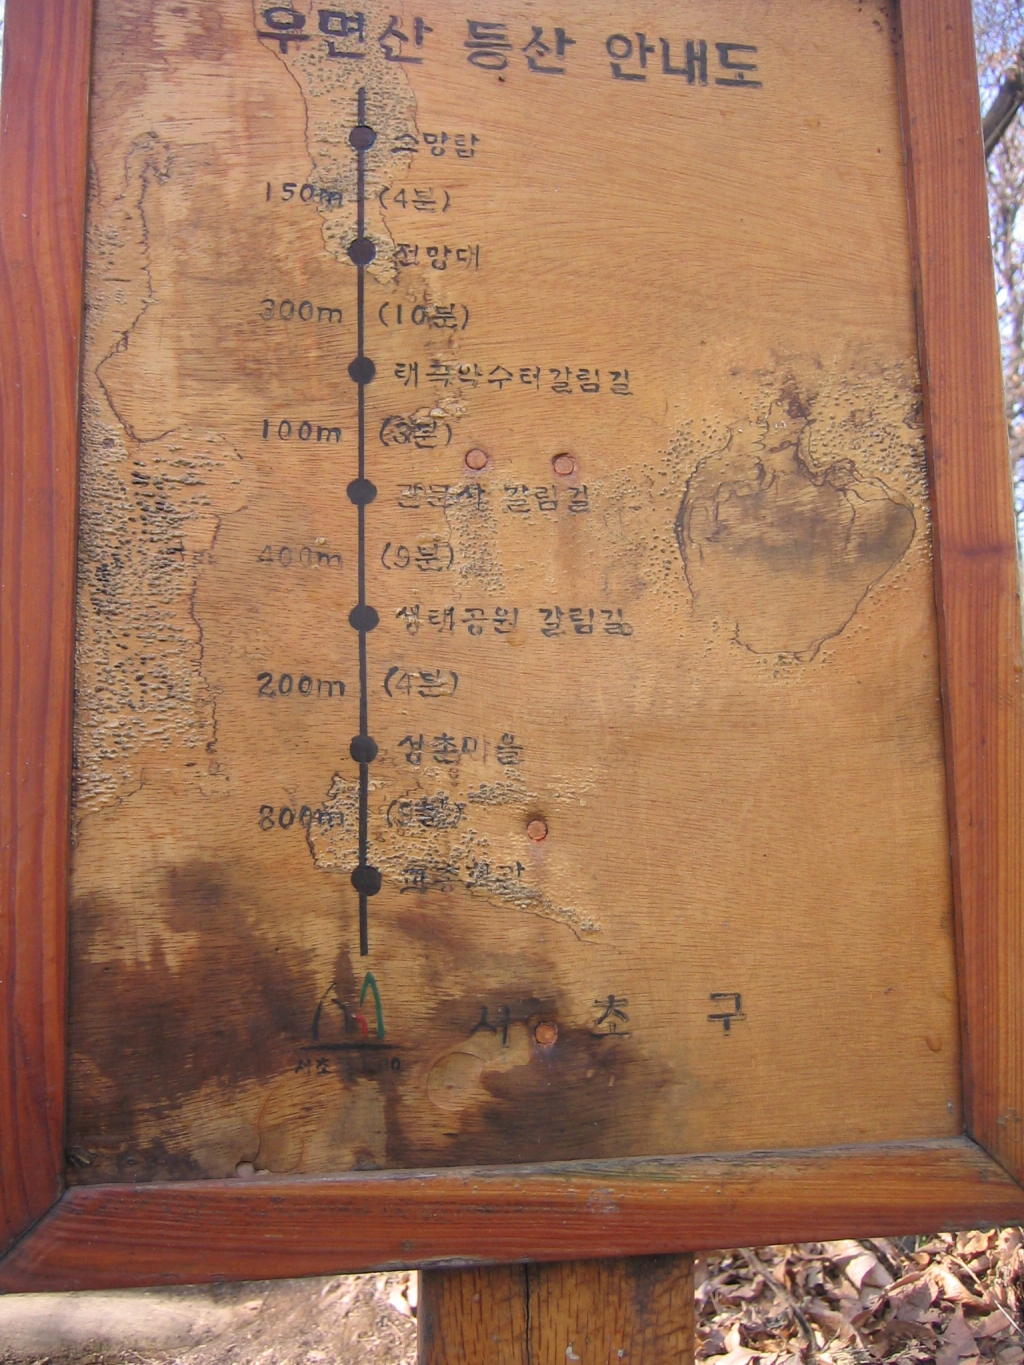 우면산 등산 안내도
소망탑
150m (4분)
전망대
300m (10분)
태극약수터갈림길
100m (3분)
관문사 갈림길
400m (9분)
생태공원 갈림길
200m (4분)
성촌마을
800m

서초구
서초